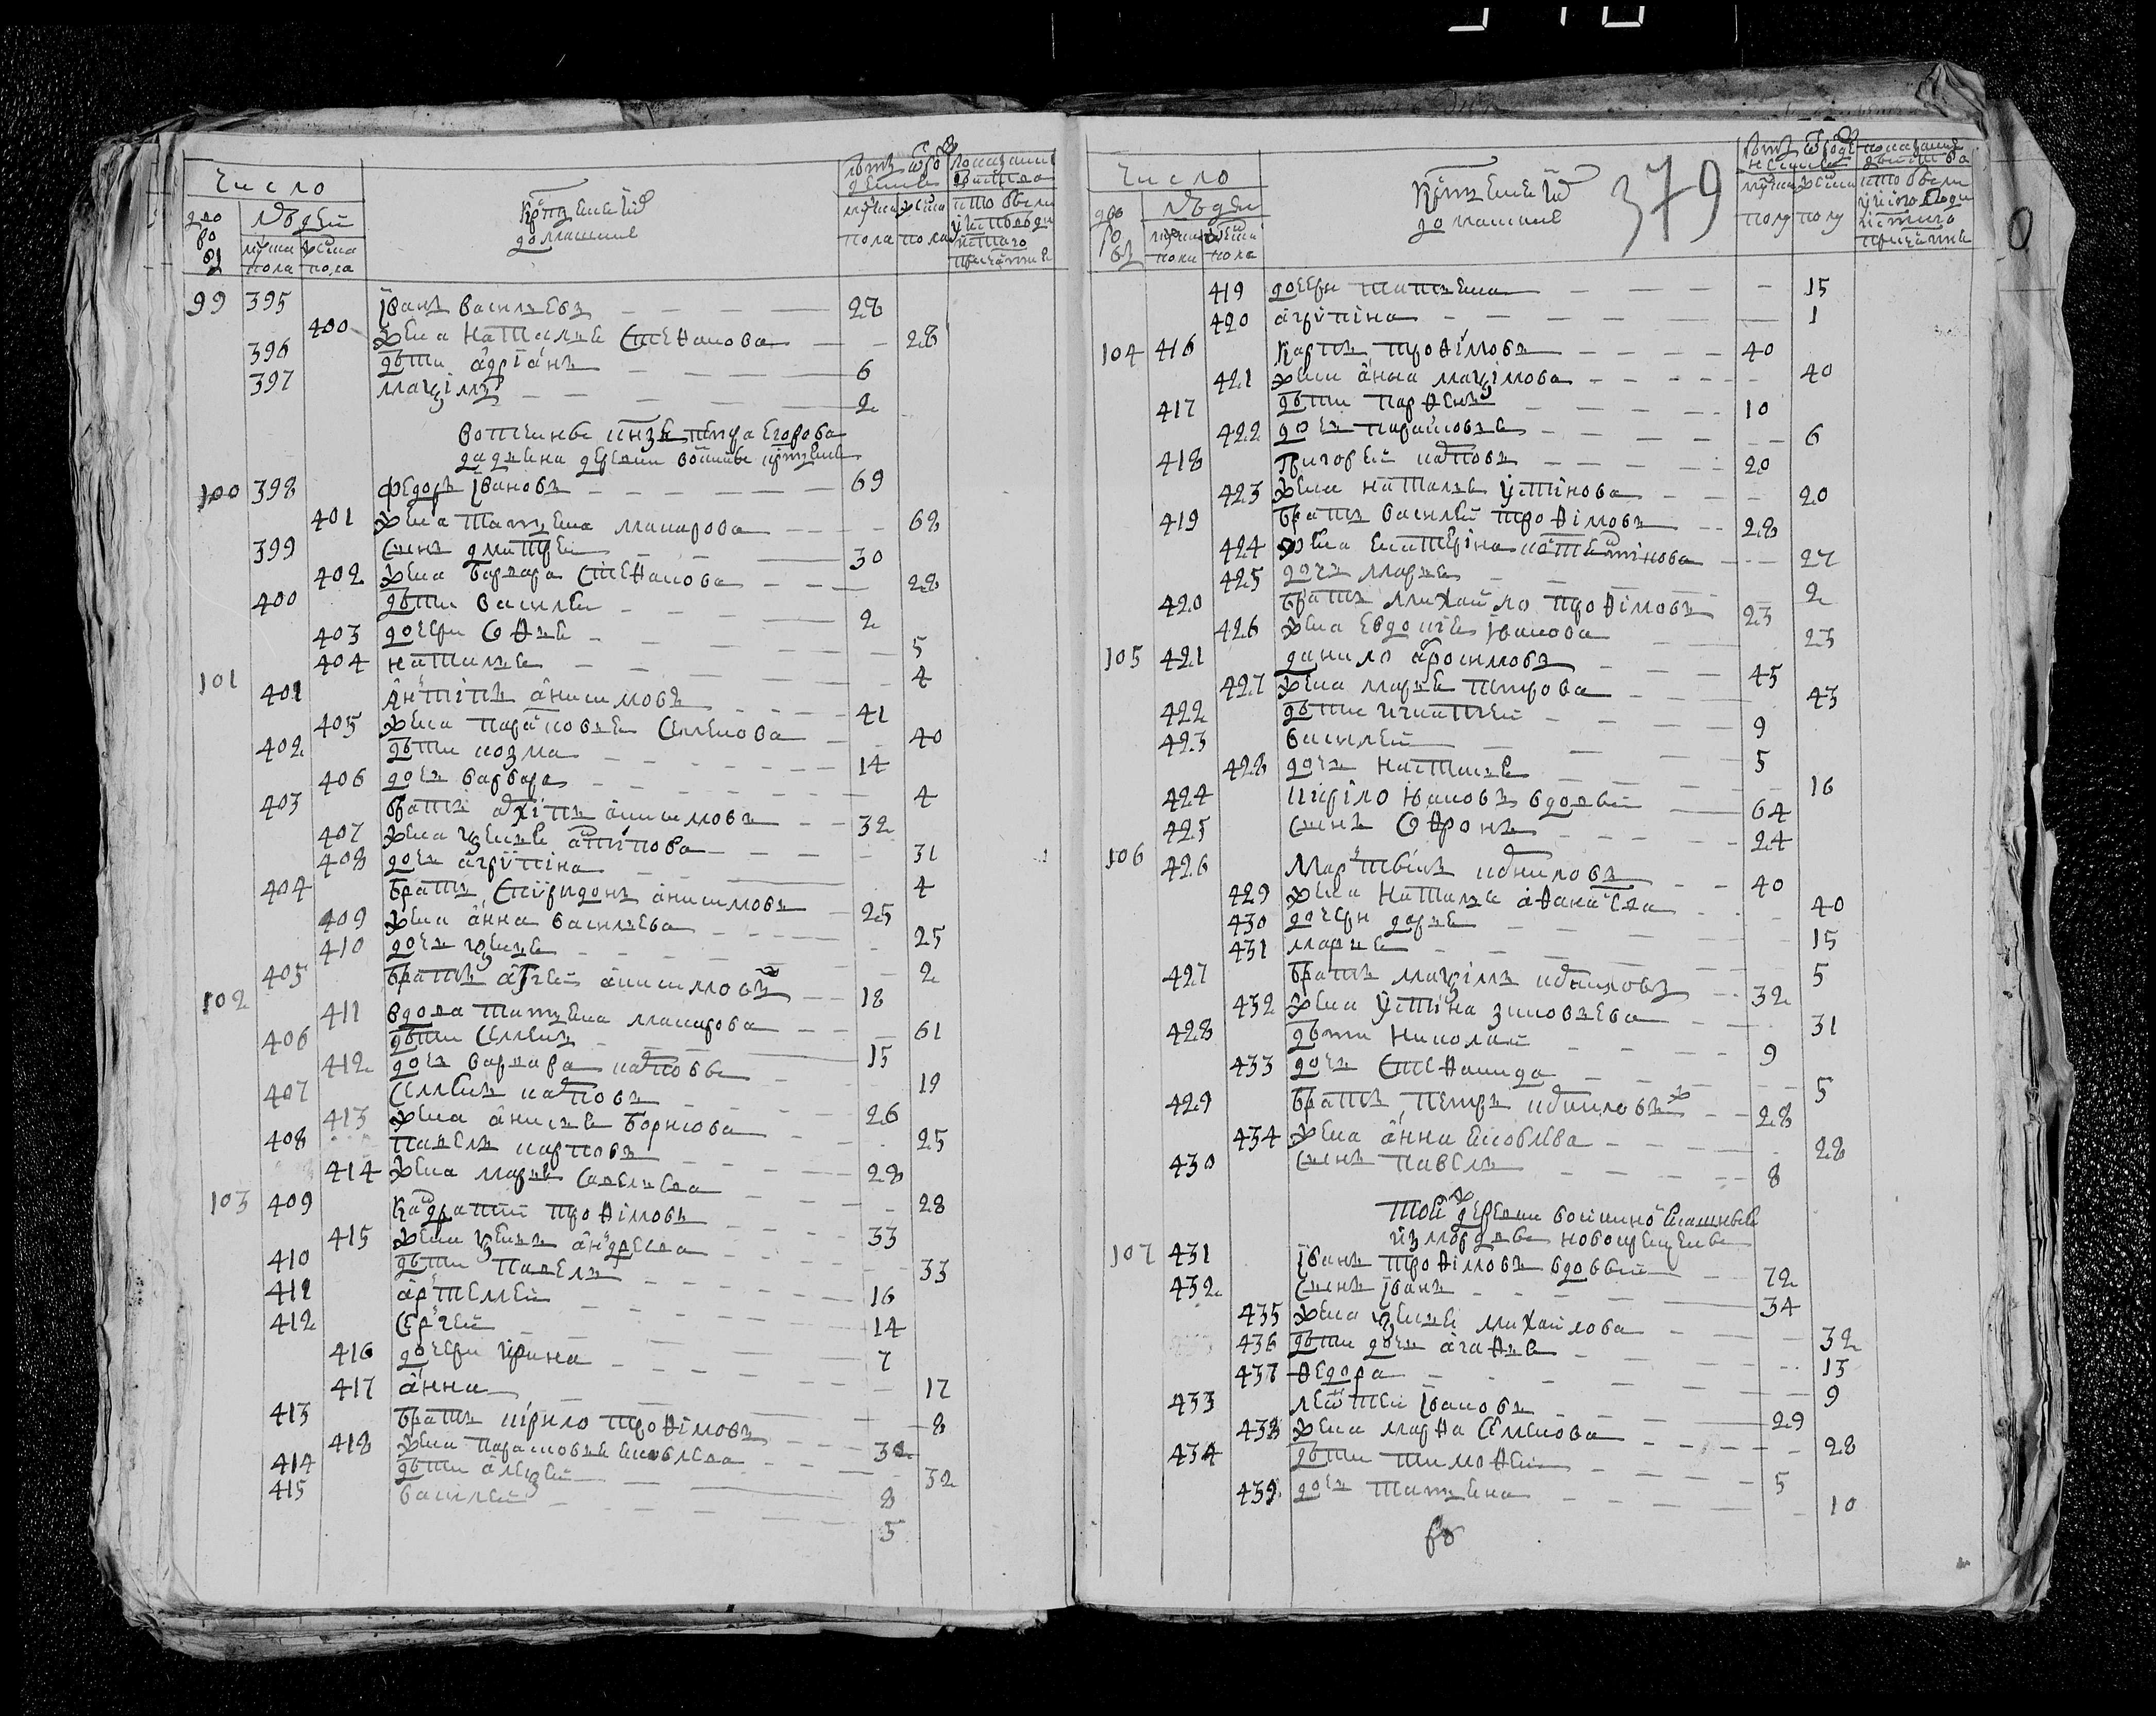 число
дворовъ
людей
муска пола
женска пола
крестьяне и ихъ
домашние
99 395 Іванъ васильевъ 28
400 жена наталья стефанова 28
396 дѣти адріанъ 6
397 маѯімъ 2
вотчины
деревни
100 398 Федоръ Івановъ 69
401 жена татьяна макарова 68
399 сынъ дмитрей 30
402 жена варвара стефанова 28
400 дѣти василей 2
403 дочери софья 5
404 наталья 4
101 401 Антіпъ анисимовъ 41
405 жена парасковья семенова 40
402 дѣти козма 14
406 дочь варвара 4
403 братъ архіпъ анисимовъ 32
407 жена ѯенья антіпова 31
408 дочь агрупіна 4
404 братъ спиридонъ анисимовъ 25
409 жена анна васильева 25
410 дочь ѯенья 2
405 братъ анисимовъ 18
102 411 вдова татьяна макарова 61
406 дѣти семенъ 15
412 дочь варвара карповы 19
407 семенъ карповъ 26
413 жена анисья борисова 25
408 павелъ карповъ 28
414 жена марья савельева 28
103 409 Кондратій трофімовъ 33
415 жена ѯенья андреева 33
410 дѣти павелъ 16
411 артемей 14
412 сергей 7
416 дочери ирина 17
417 анна 8
413 братъ кірило трофімовъ 32
418 жена парасковья яковлева 32
414 дѣти алеѯей 8
415 василей 5
379
число
дворовъ
людей
муска пола
женска пола
крестьяне и ихъ
домашние
419 дочери татьяна 15
420 агрупіна 1
104 416 Карпъ трофімовъ 40
421 жена анна маѯімова 40
417 дѣти парфенъ 10
422 дочь парасковья 6
418 Григорей карповъ 20
423 жена наталья устінова 20
419 братъ василей трофімовъ 28
424 жена екатеріна 27
425 дочь марья 2
420 братъ михайло трофімовъ 23
426 жена евдокія іванова 23
105 421 данило 45
427 жена марья петрова 43
422 дѣти игнатей 9
423 василей 5
428 дочь настасья 16
424 кирило івановъ вдовый 64
425 сынъ софронъ 24
106 426 даниловъ 40
429 жена наталья афанасева 40
430 дочери дарья 15
431 марья 5
427 братъ маѯімъ даниловъ 32
432 жена устіна зиновьева 31
428 дѣти николай 9
433 дочь стефанида 5
429 братъ петръ даниловъ 28
434 жена анна яковлева 28
430 сынъ павелъ 8
той же деревни
из мордвы новокрещены
107 431 Іванъ трофімовъ вдовый 72
432 сынъ іванъ 34
435 жена ѯенья михайлова 32
436 дѣти дочь агафья 13
437 федора 9
433 івановъ 29
438 жена марфа семенова 28
434 дѣти тимофей 5
439 дочь татьяна 10